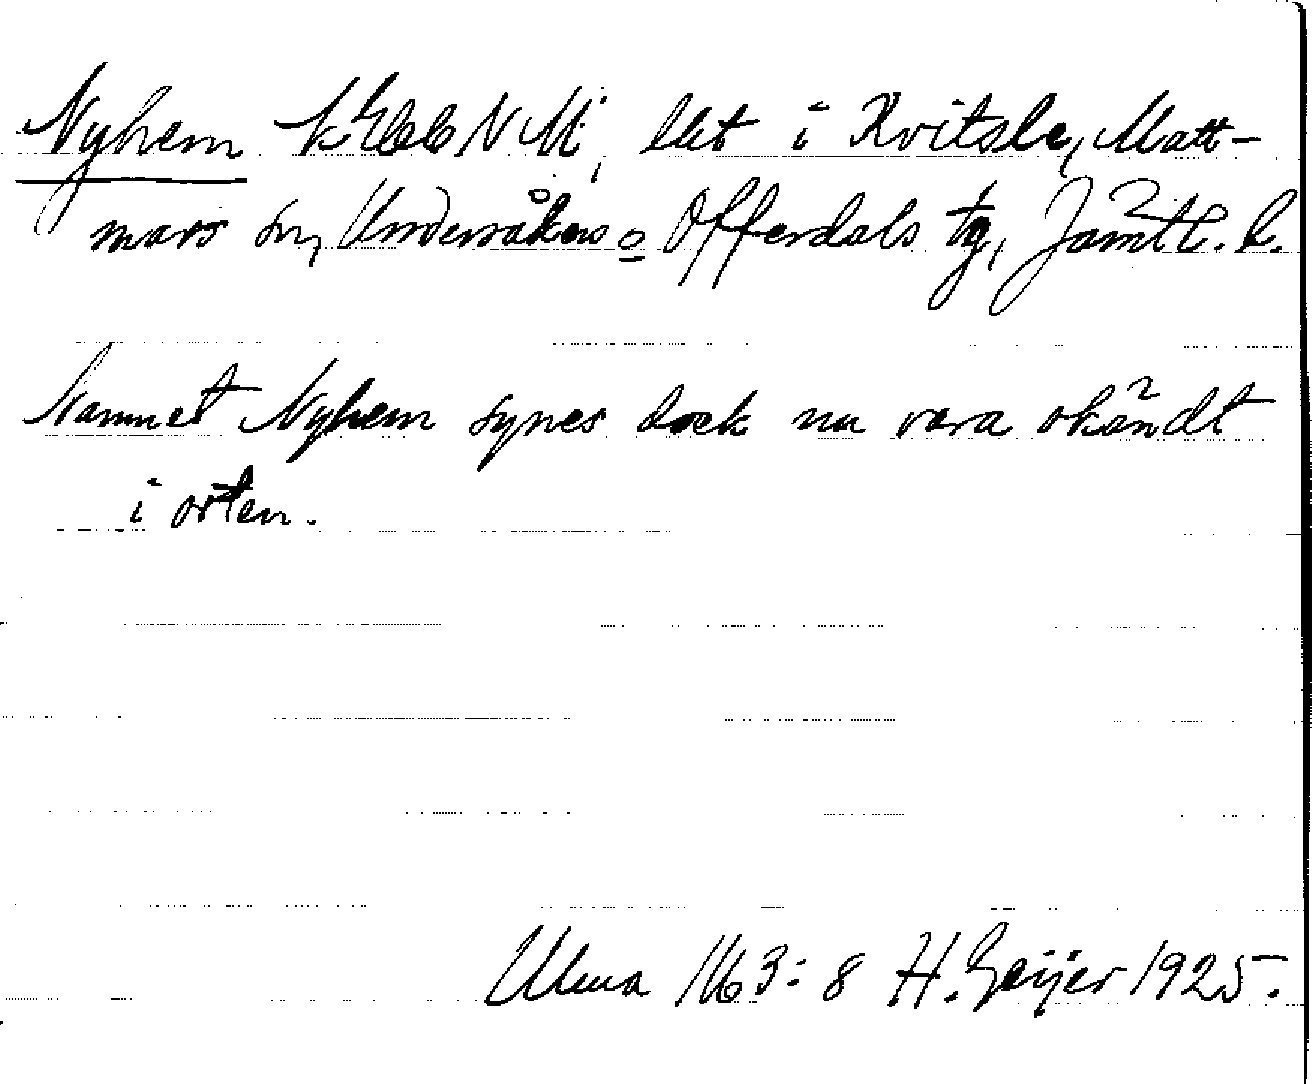 Nyhem i Kvitsle, Matt-
mars sn, Undersåkers o Offerdals tg, Jämtl. l.
Namnet Nyhem synes dock nu vara okändt
i orten.
Ulma 163: 8 H. Geijer 1925.